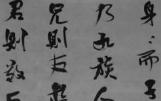 身而子
乃九族人
兄則友
君則敬